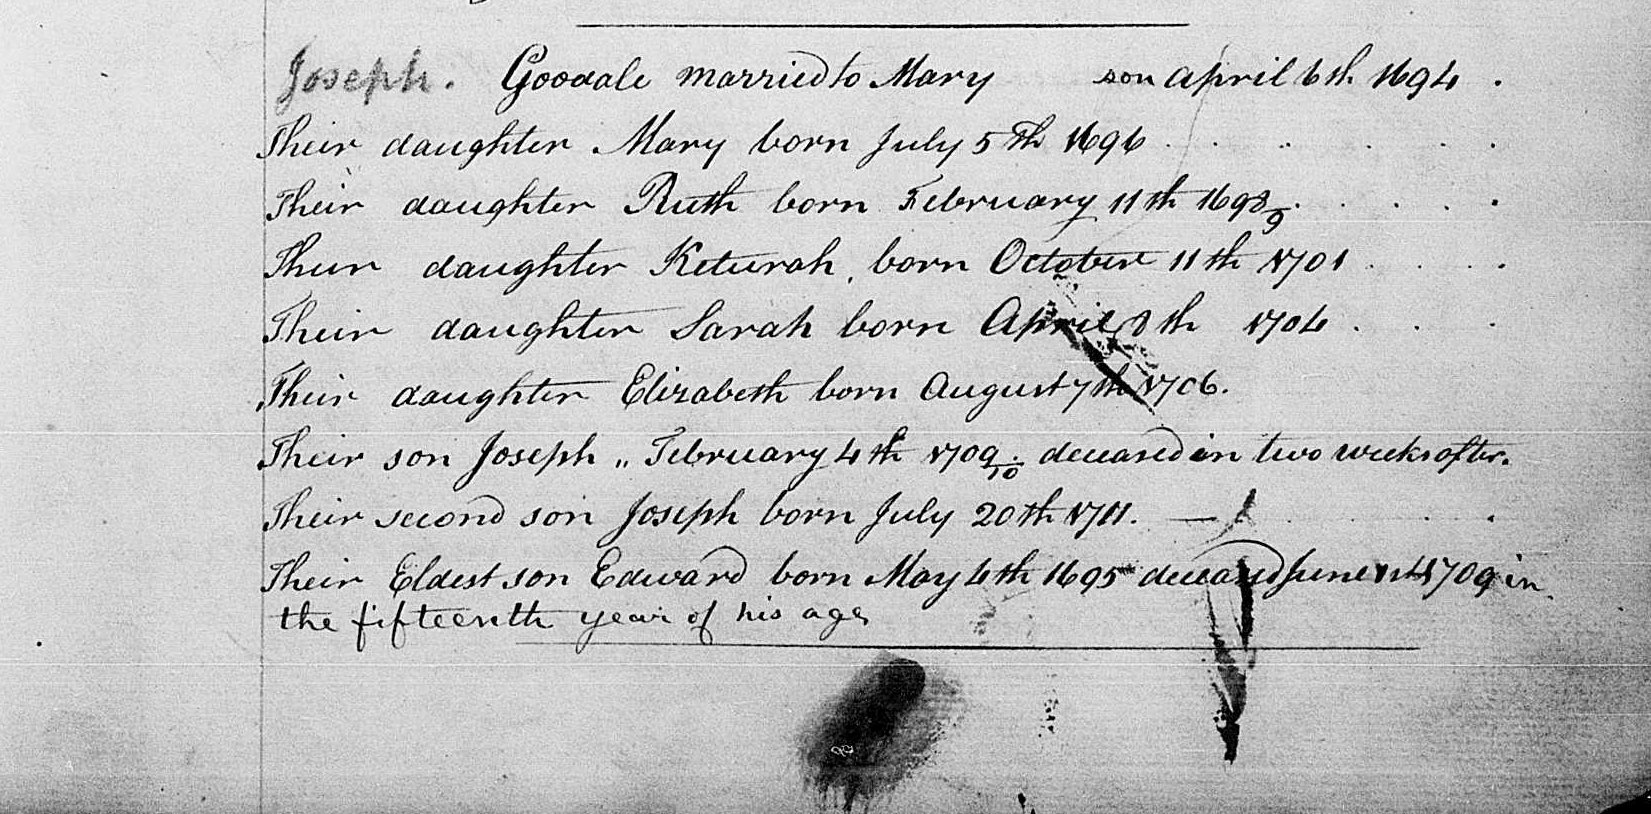 Joseph. Goodale married to Mary son April 6th 1694.
Their daughter Mary born July 5th 1696
Their daughter Ruth born February 11th 1698/9
Their daughter Keturah, born October 11th 1701
Their daughter Sarah born April 8th 1704
Their daughter Elizabeth born August 7th 1706.
Their son Joseph „ February 4th 1709/10. deceased in two weeks after.
Their second son Joseph born July 20th 1711. —
Their Eldest son Edward born May 4th 1695 deceased June 1709 in
the fifteenth year of his age